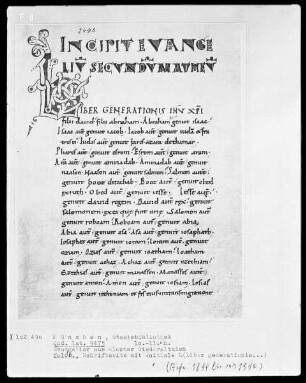 2498
INCIPIT EVANGE
LIŪ SECVNDVM
LIBER GENERATIONIS IHV XPI
filii david filii abraham. Abraham genuit isaac.
Isaac aut̄ genuit iacob. Iacob aut̄ genuit
Iudas aut̄ genuit
Phares aut̄ genuit esrom. Esrom aut̄ genuit aram.
Aram aut̄ genuit aminadab. Aminadab aut̄ genuit
naason. Naason aut̄ genuit salmon. Salmon aut̄
genuit booz de rachab. Booz aut̄ genuit obed
ex ruth. Obed aut̄ genuit iesse. Iesse aut̄
genuit david regem. David aut̄ rex genuit
salomonem ex ea que fuit urie. Salomon aut̄
genuit roboam. Roboam aut̄ genuit abia.
Abia aut̄ genuit asa. Asa aut̄ genuit iosaphath.
Iosaphat aut̄ genuit ioram. Ioram aut̄ genuit
oziam. Ozias aut̄ genuit ioatham. Ioatham
aut̄ genuit achaz. Achaz aut̄ genuit ezechiam.
Ezechias aut̄ genuit manassen. Manasses aut̄
genuit amon. Amon aut̄ genuit iosiam. Iosias aut̄
genuit iechoniam et fratres
München, Staatsbibliothek
Cod. lat. 9475 10.-11.Jh.
Evangeliar aus Kloster Niederalteich
fol. Schriftseite mit Initiale L(iber generationis..)